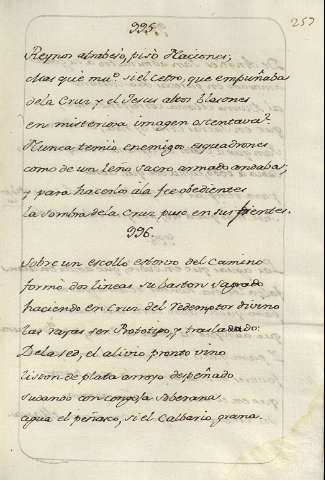 257
335.
Reynos atrabesó, pisó Naciones;
Mas què mu.º si el Cetro, que empuñaba
de la Cruz y el Jesus altos blasones
en misteriosa imagen ostentava?
Nunca temió enemigos esquadrones
como de un leño sacro armado andaba;
y para hacerlos á la fee obedientes
la sombra de la Cruz puso en sus frentes.
336.
Sobre un escollo estorvo del Camino
formó dos lineas su baston sagrado
haciendo en Cruz del Redemptor divino
las rayas ser Prototipo, y traslado:
De la sed, el alivio pronto vino
liston de plata arroyo despeñado
sudando con congoja soberana
agua el peñasco, si el Calbario grana.